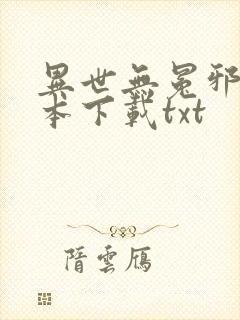 異世無冕邪
本下載txt
隋雲鴈